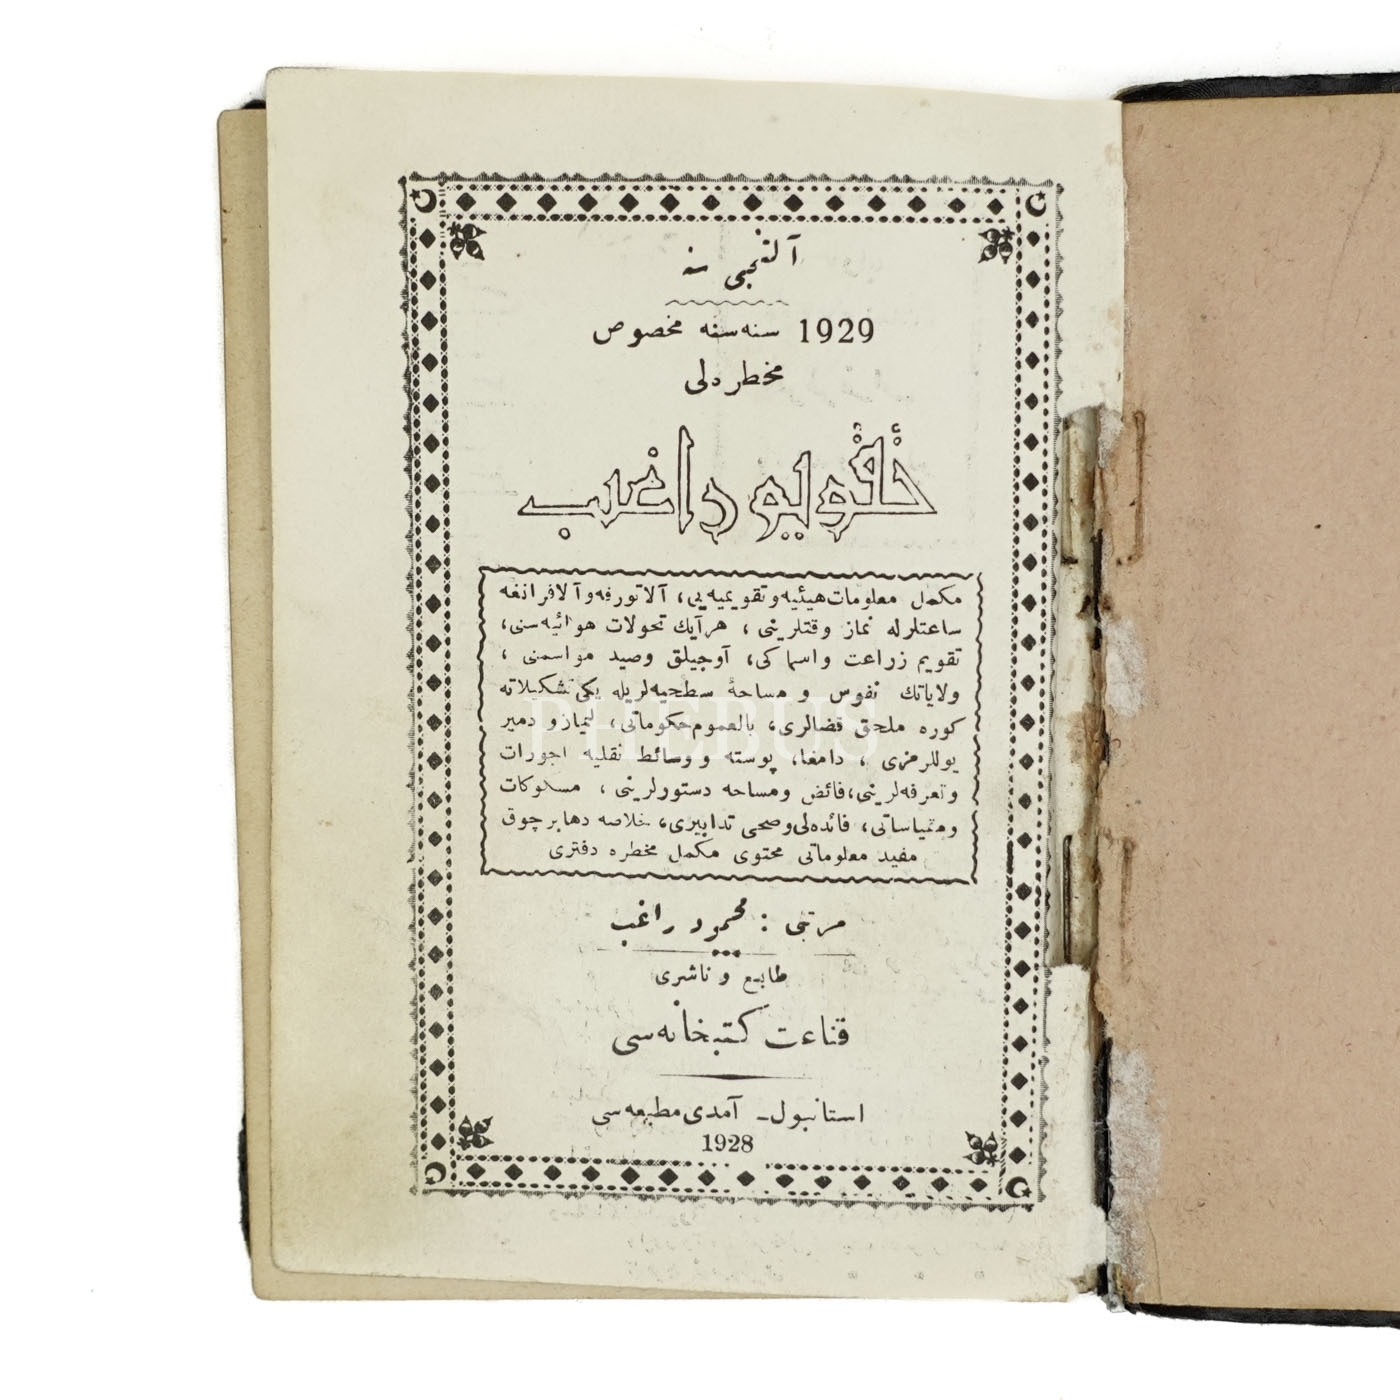 آلتنجی سنه
1929 سنه‌سنه مخصوص
مخطره‌لی
تقویم راغب
مکمل معلومات هیئیه و تقویمیه‌یی، آلاتورقه و آلافرانغه
ساعتلرله نماز وقتلرینی، هر آیك تحولات هوائیه‌سنی،
تقویم زراعت و اسماکی، آوجیلق وصید مواسمنی،
ولایاتك نفوس و مساحهٔ سطحیه‌لریله یکی تشکیلاته
کوره ملحق قضالری، بالعموم حکوماتی، لیماز و دمیر
یوللرمزی، دامغا، پوسته و وسائط نقلیه اجورات
وتعرفه‌لرینی، فائض ومساحه دستورلرینی، مسکوکات
ومقیاساتی، فائده‌لی وصحی تدابیری، خلاصه دها بر چوق
مفید معلوماتی محتوی مکمل مخطره دفتری
مرتبی : محمود راغب
طابع و ناشری
قناعت کتبخانه‌سی
استانبول ـ آمدی مطبعه‌سی
1928
PHEBUS